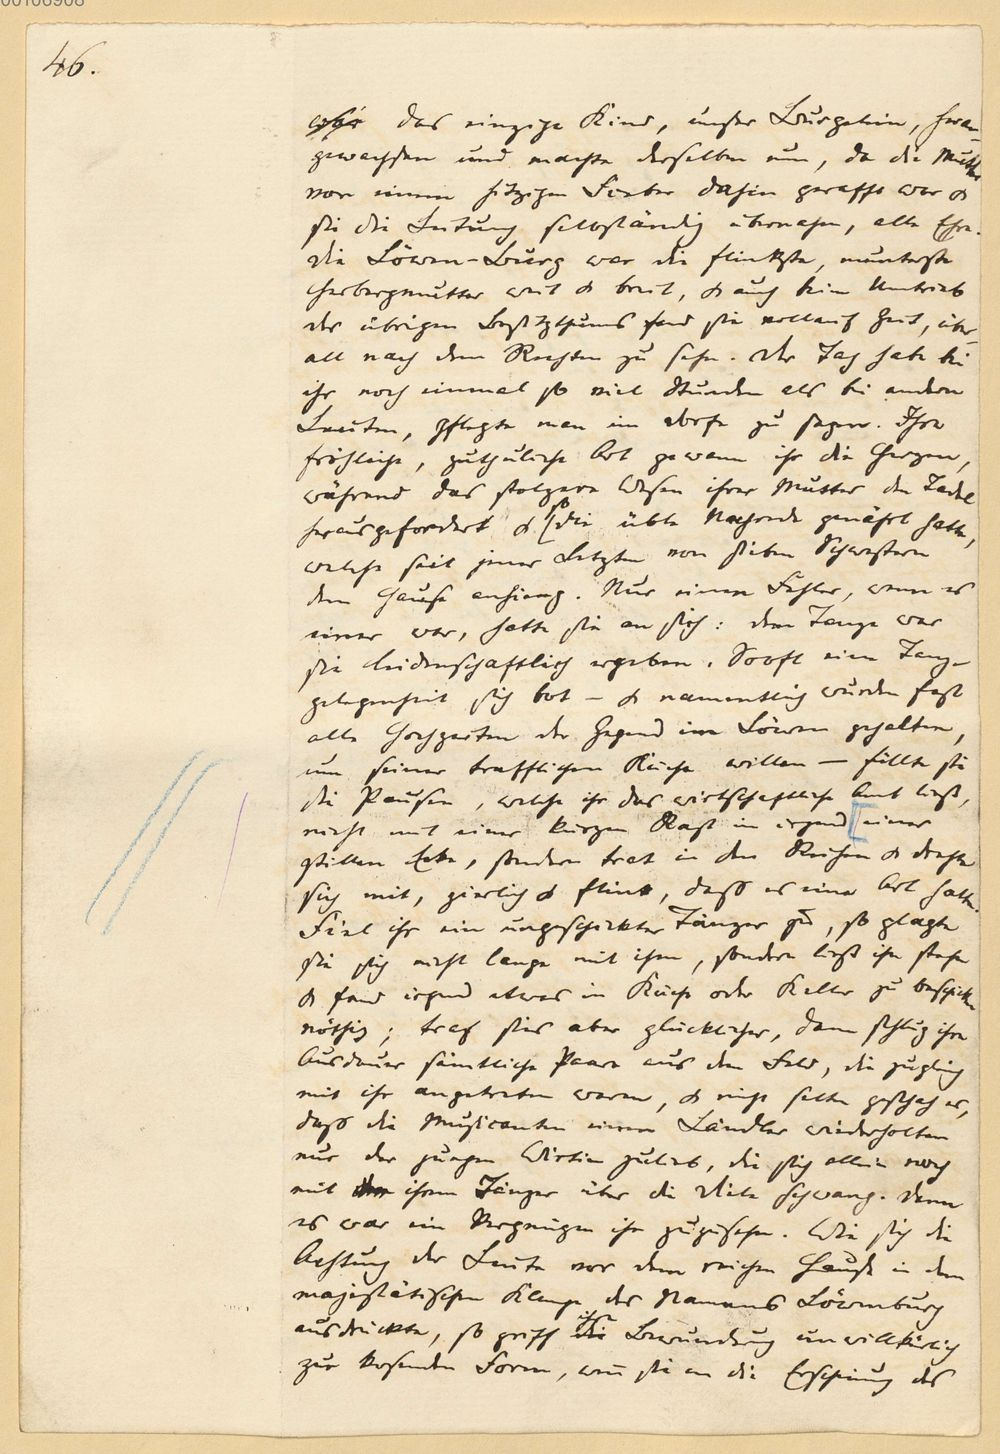 00106908
46.
das einzige Kind, unser Burgelein, heran-
gewachsen und machte derselben nun, da die Mutter
von einem hitzigen Fieber dahin gerafft war &
sie die Leitung selbständig übernahm, alle Ehre.
Die Löwen-Burg war die flinkste, munterste
Herbergmutter weit & breit, & auch beim Umtrieb
der übrigen Besitzthums fand sie vollauf Zeit, über-
all nach dem Rechten zu sehn. Der Tag habe bei
ihr noch einmal so viel Stunden als bei andern
Leuten, pflegte man im Dorfe zu sagen. Ihre
fröhliche, zuthuliche Art gewann ihr die Herzen,
während das stolzere Wesen ihrer Mutter den Tadel
herausgefordert & so die üble Nachrede genährt hatte,
welche seit jener Letzten von sieben Schwestern
dem Hause anhieng. Nur einen Fehler, wenn es
einer war, hatte sie an sich: dem Tanze war
sie leidenschaftlich ergeben. Sooft eine Tanz-
gelegenheit sich bot – & namentlich wurden fast
alle Hochzeiten der Gegend im Löwen gehalten,
um seiner trefflichen Küche willen – füllte sie
die Pausen, welche ihr das wirtschaftliche Amt ließ,
nicht mit einer kurzen Rast in irgend einer
stillen Ecke, sondern trat in den Reihen & drehte
sich mit, zierlich & flink, daß es eine Art hatte.
Fiel ihr ein ungeschickter Tänzer zu, so plagte
sie sich nicht lange mit ihm, sondern ließ ihn stehn
& fand irgend etwas in Küche oder Keller zu beschicken
nöthig; traf sies aber glücklicher, dann schlug ihre
Ausdauer sämtliche Paare aus dem Feld, die zugleich
mit ihr angetreten waren, & nicht selten geschah es,
daß die Musicanten einen Ländler wiederholten
nur der jungen Wirtin zulieb, die sich allein noch
mit ihrem Tänzer über die Diele schwang. Denn
es war ein Vergnügen ihr zuzusehn. Wie sich die
Achtung der Leute vor dem reichen Hause in dem
majestätischen Klange des Namens Löwenburg
ausdrückte, so griff ihre Bewunderung unwillkürlich
zur kosenden Form, wenn sie an die Erscheinung des